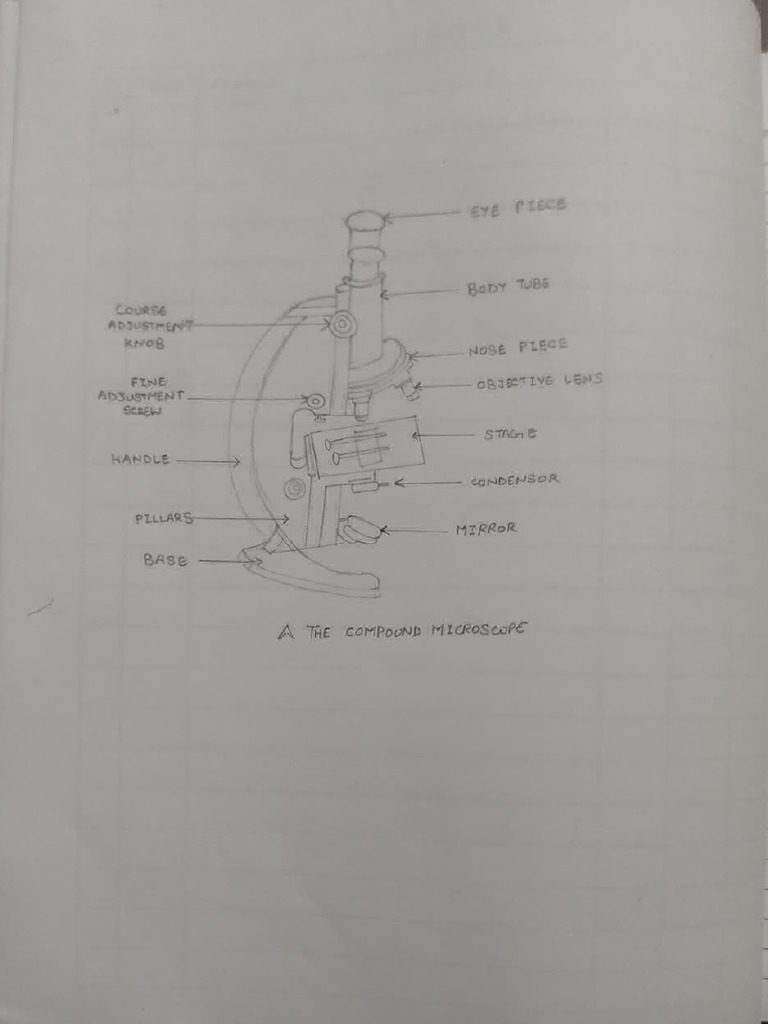 EYE PIECE
BODY TUBE
COURSE
ADJUSTMENT
KNOB
NOSE PIECE
OBJECTIVE LENS
FINE
ADJUSTMENT
SCREW
STAGE
HANDLE
CONDENSOR
PILLARS
MIRROR
BASE
A THE COMPOUND MICROSCOPE